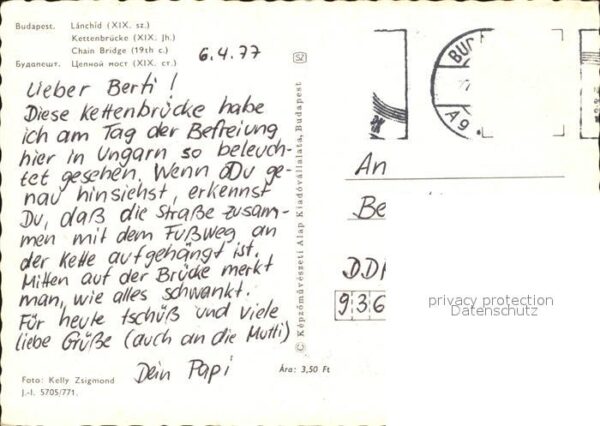 Budapest. Lánchíd (XIX. sz.)
Kettenbrücke (XIX. Jh.)
Chain Bridge (19th c.)
Будапешт. Цепной мост (XIX. ст.)
6.4.77
Lieber Berti!
Diese Kettenbrücke habe
ich am Tag der Befreiung
hier in Ungarn so beleuch-
tet gesehen. Wenn Du ge-
nau hinsiehst, erkennst
Du, daß die Straße zusam-
men mit dem Fußweg an
der Kette aufgehängt ist.
Mitten auf der Brücke merkt
man, wie alles schwankt.
Für heute tschüß und viele
liebe Grüße (auch an die Mutti)
Dein Papi
Foto: Kelly Zsigmond
J.-I. 5705/771.
Ára: 3,50 Ft
© Képzőművészeti Alap Kiadóvállalata, Budapest
SZ
BUD
A9
An
Be
DD
936
privacy protection
Datenschutz